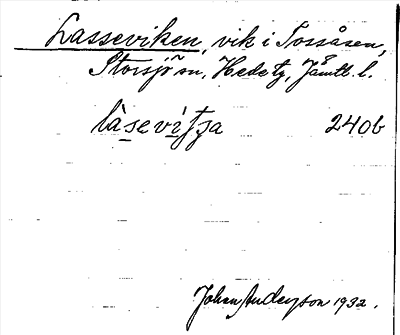 Lasseviken, vik i Tossåsen,
Storsjö sn, Hede tg, Jämtl. l.
làsevìtja 240b
Johan Anderson 1932.